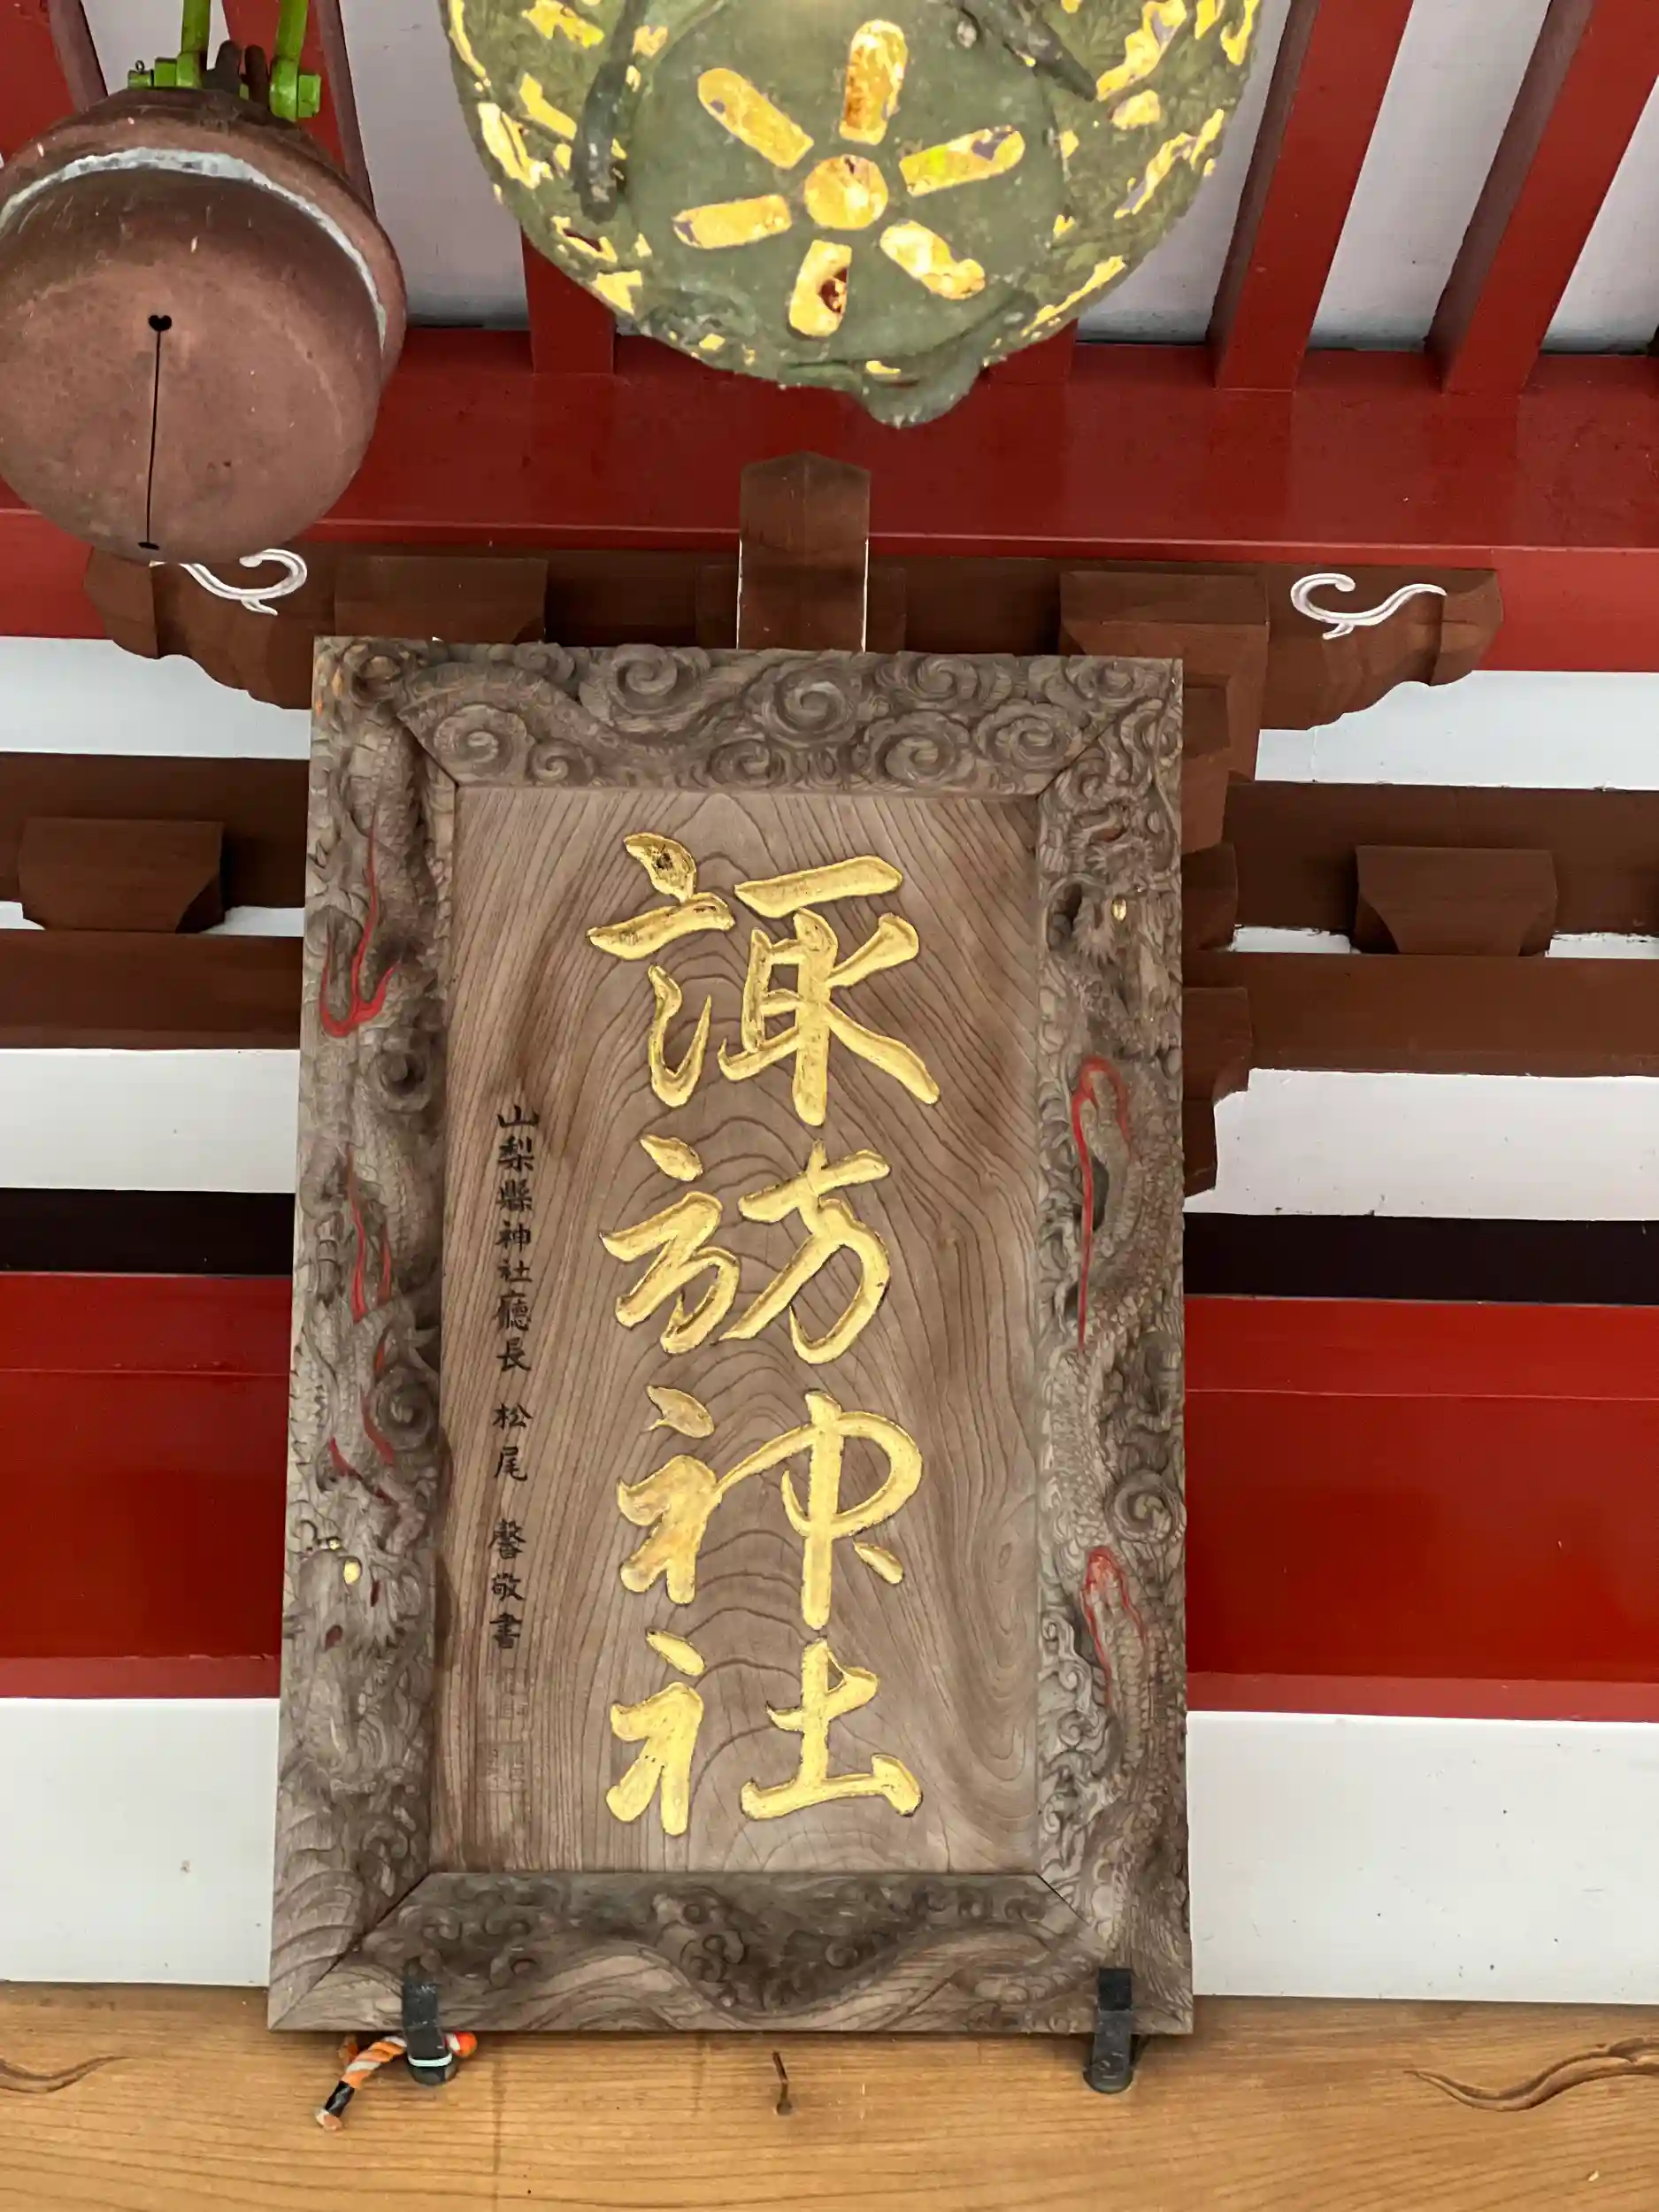 諏訪神社
山梨縣神社廳長 松尾 馨敬書